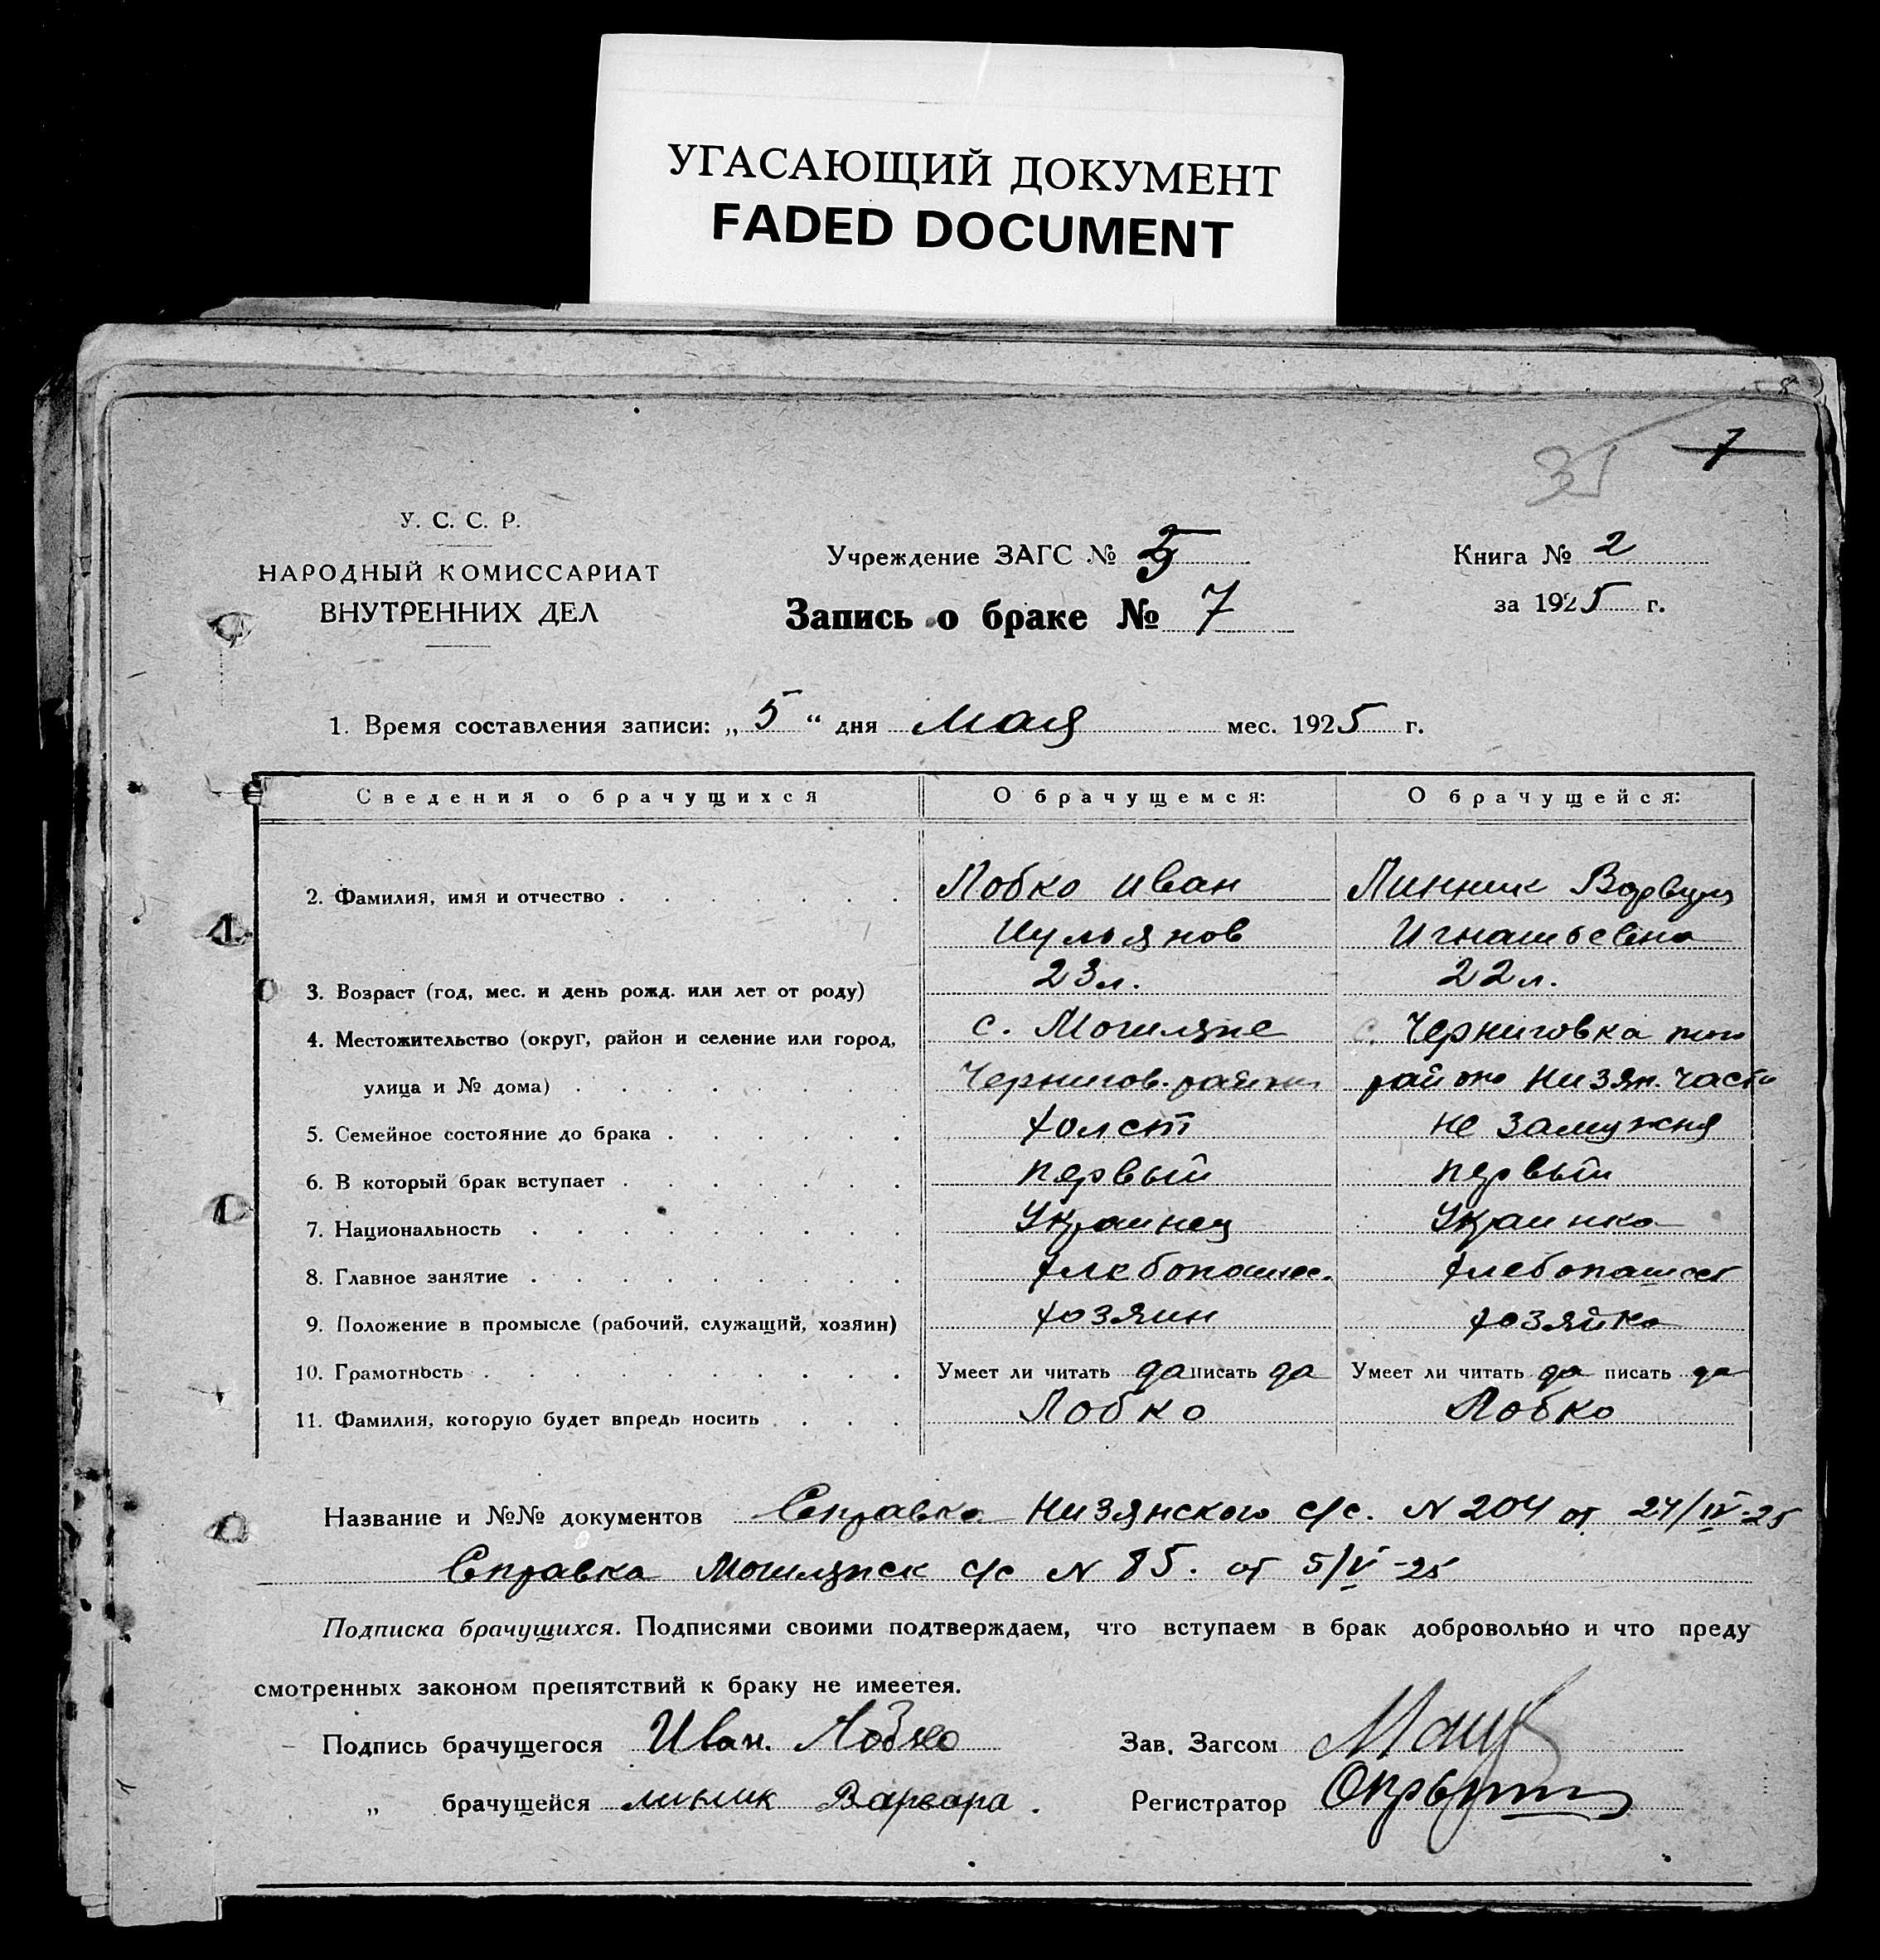 УГАСАЮЩИЙ ДОКУМЕНТ
FADED DOCUMENT
8
35
7
У. С. С. Р.
НАРОДНЫЙ КОМИССАРИАТ
ВНУТРЕННИХ ДЕЛ
Учреждение ЗАГС №
Запись о браке № 7
Книга № 2
за 1925 г.
1. Время составления записи: „5“ дня Мая мес. 1925 г.
Сведения о брачущихся О брачущемся: О брачущейся:
2. Фамилия, имя и отчество Лобко Иван Линник Варвара
Иульянов Игнатьевна
3. Возраст (год, мес. и день рожд. или лет от роду) 23 л. 22 л.
4. Местожительство (округ, район и селение или город, с. Могиляне с. Черниговка того
улица и № дома) Чернигов. района района Низян. части
5. Семейное состояние до брака холост не замужня
6. В который брак вступает первый первый
7. Национальность Украинец Украинка
8. Главное занятие хлебопашес. хлебопашест
9. Положение в промысле (рабочий, служащий, хозяин) хозяин хозяйка
10. Грамотность Умеет ли читать да писать да Умеет ли читать да писать да
11. Фамилия, которую будет впредь носить Лобко Лобко
Название и №№ документов Справка Низянского с/с. N 204 от 24/IV-25
Справка Могилянск с/с N 85. от 5/V-25
Подписка брачущихся. Подписями своими подтверждаем, что вступаем в брак добровольно и что преду
смотренных законом препятствий к браку не имеется.
Подпись брачущегося Иван. Лобко Зав. Загсом
„ брачущейся линник Варвара. Регистратор